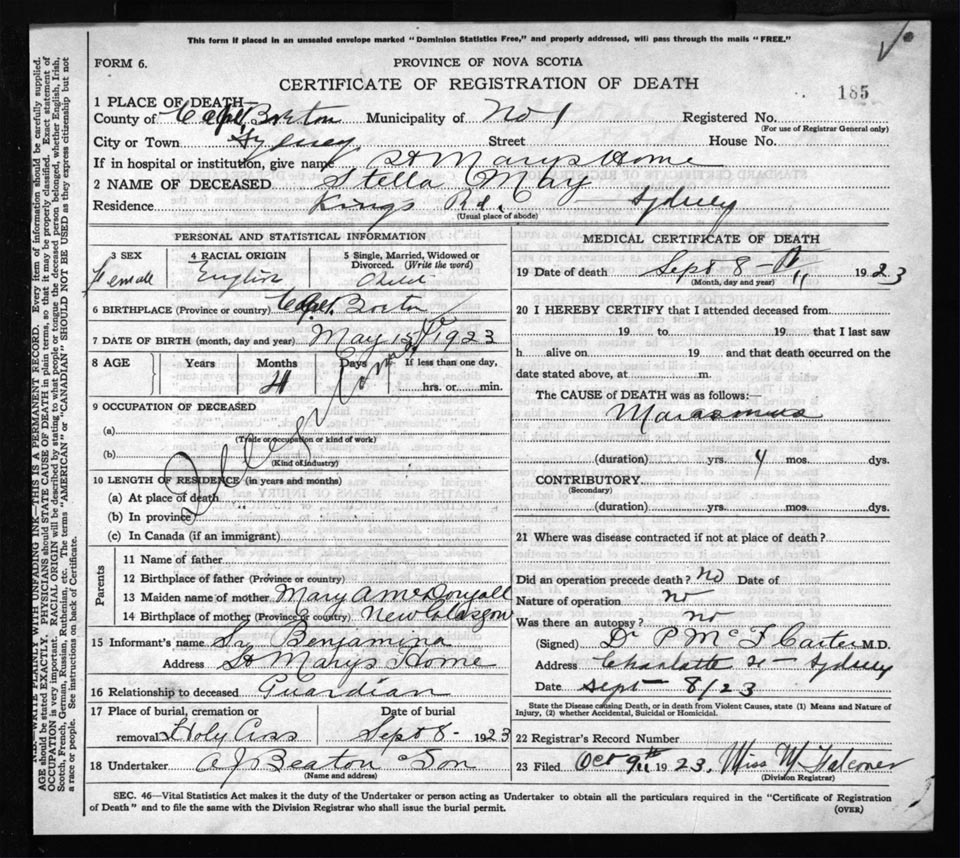 This form if placed in an unsealed envelope marked "Dominion Statistics Free," and properly addressed, will pass through the mails "FREE."
FORM 6.
PROVINCE OF NOVA SCOTIA
CERTIFICATE OF REGISTRATION OF DEATH
185
1 PLACE OF DEATH—
County of Cape Breton Municipality of No 1 Registered No.
(For use of Registrar General only)
City or Town Sydney Street House No.
If in hospital or institution, give name St Marys Home
2 NAME OF DECEASED Stella May
Residence Kings Rd. Sydney
(Usual place of abode)
PERSONAL AND STATISTICAL INFORMATION
3 SEX 4 RACIAL ORIGIN 5 Single, Married, Widowed or Divorced. (Write the word)
Female English Child
6 BIRTHPLACE (Province or country) Cape Breton
7 DATE OF BIRTH (month, day and year) May 15th 1923
8 AGE Years Months Days If less than one day,
4 hrs. or min.
9 OCCUPATION OF DECEASED
(a)
(Trade or occupation or kind of work)
(b)
(Kind of industry)
10 LENGTH OF RESIDENCE (in years and months)
(a) At place of death
(b) In province
(c) In Canada (if an immigrant)
Parents
11 Name of father
12 Birthplace of father (Province or country)
13 Maiden name of mother Mary A McDougall
14 Birthplace of mother (Province or country) New Glasgow
15 Informant's name Sr Benjamina
Address St Marys Home
16 Relationship to deceased Guardian
17 Place of burial, cremation or removal Holy Cross Date of burial Sept 8- 1923
18 Undertaker A J Beaton & Son
(Name and address)
MEDICAL CERTIFICATE OF DEATH
19 Date of death Sept 8-th 1923
(Month, day and year)
20 I HEREBY CERTIFY that I attended deceased from
19 to 19 that I last saw
h alive on 19 and that death occurred on the
date stated above, at m.
The CAUSE of DEATH was as follows:—
Marasmus
(duration) yrs. 4 mos. dys.
CONTRIBUTORY
(Secondary)
(duration) yrs. mos. dys.
21 Where was disease contracted if not at place of death?
Did an operation precede death? No Date of
Nature of operation no
Was there an autopsy? no
(Signed) Dr P Mc F Carter M.D.
Address Charlotte St- Sydney
Date Sept 8/23
State the Disease causing Death, or in death from Violent Causes, state (1) Means and Nature of
Injury, (2) whether Accidental, Suicidal or Homicidal.
22 Registrar's Record Number
23 Filed Oct 9th 1923, Miss M Falconer
(Division Registrar)
SEC. 46—Vital Statistics Act makes it the duty of the Undertaker or person acting as Undertaker to obtain all the particulars required in the "Certificate of Registration
of Death" and to file the same with the Division Registrar who shall issue the burial permit.
(OVER)
WRITE PLAINLY WITH UNFADING INK—THIS IS A PERMANENT RECORD. Every item of information should be carefully supplied.
AGE should be stated EXACTLY. PHYSICIANS should STATE CAUSE OF DEATH in plain terms, so that it may be properly classified. Exact statement of
OCCUPATION is very important. RACIAL ORIGIN will be described by stating to what people or tongue the deceased person belonged, whether English, Irish,
Scotch, French, German, Russian, Ruthenian, etc. The terms "AMERICAN" or "CANADIAN" SHOULD NOT BE USED as they express citizenship but not
a race or people. See instructions on back of Certificate.